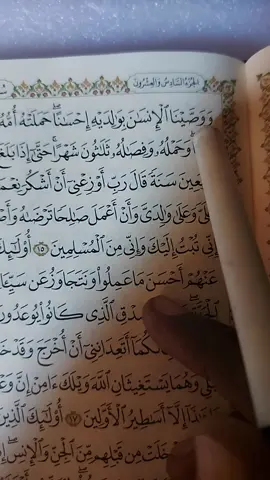 الجزء السادس والعشرون
وَوَصَّيْنَا ٱلْإِنسَٰنَ بِوَٰلِدَيْهِ إِحْسَٰنًا ۖ حَمَلَتْهُ أُمُّهُ
وَحَمْلُهُۥ وَفِصَٰلُهُۥ ثَلَٰثُونَ شَهْرًا ۚ حَتَّىٰٓ إِذَا بَلَغَ
سَنَةً قَالَ رَبِّ أَوْزِعْنِىٓ أَنْ أَشْكُرَ
وَعَلَىٰ وَٰلِدَىَّ وَأَنْ أَعْمَلَ صَٰلِحًا تَرْضَىٰهُ
إِنِّى تُبْتُ إِلَيْكَ وَإِنِّى مِنَ ٱلْمُسْلِمِينَ ١٥
عَنْهُمْ أَحْسَنَ مَا عَمِلُوا۟ وَنَتَجَاوَزُ عَن
ٱلَّذِى كَانُوا۟ يُوعَدُونَ
لَّكُمَآ أَتَعِدَانِنِىٓ أَنْ أُخْرَجَ وَقَدْ
وَهُمَا يَسْتَغِيثَانِ ٱللَّهَ وَيْلَكَ ءَامِنْ إِنَّ
إِلَّآ أَسَٰطِيرُ ٱلْأَوَّلِينَ ١٧ أُو۟لَٰٓئِكَ ٱلَّذِينَ
خَلَتْ مِن قَبْلِهِم مِّنَ ٱلْجِنِّ وَٱلْإِنسِ ۖ